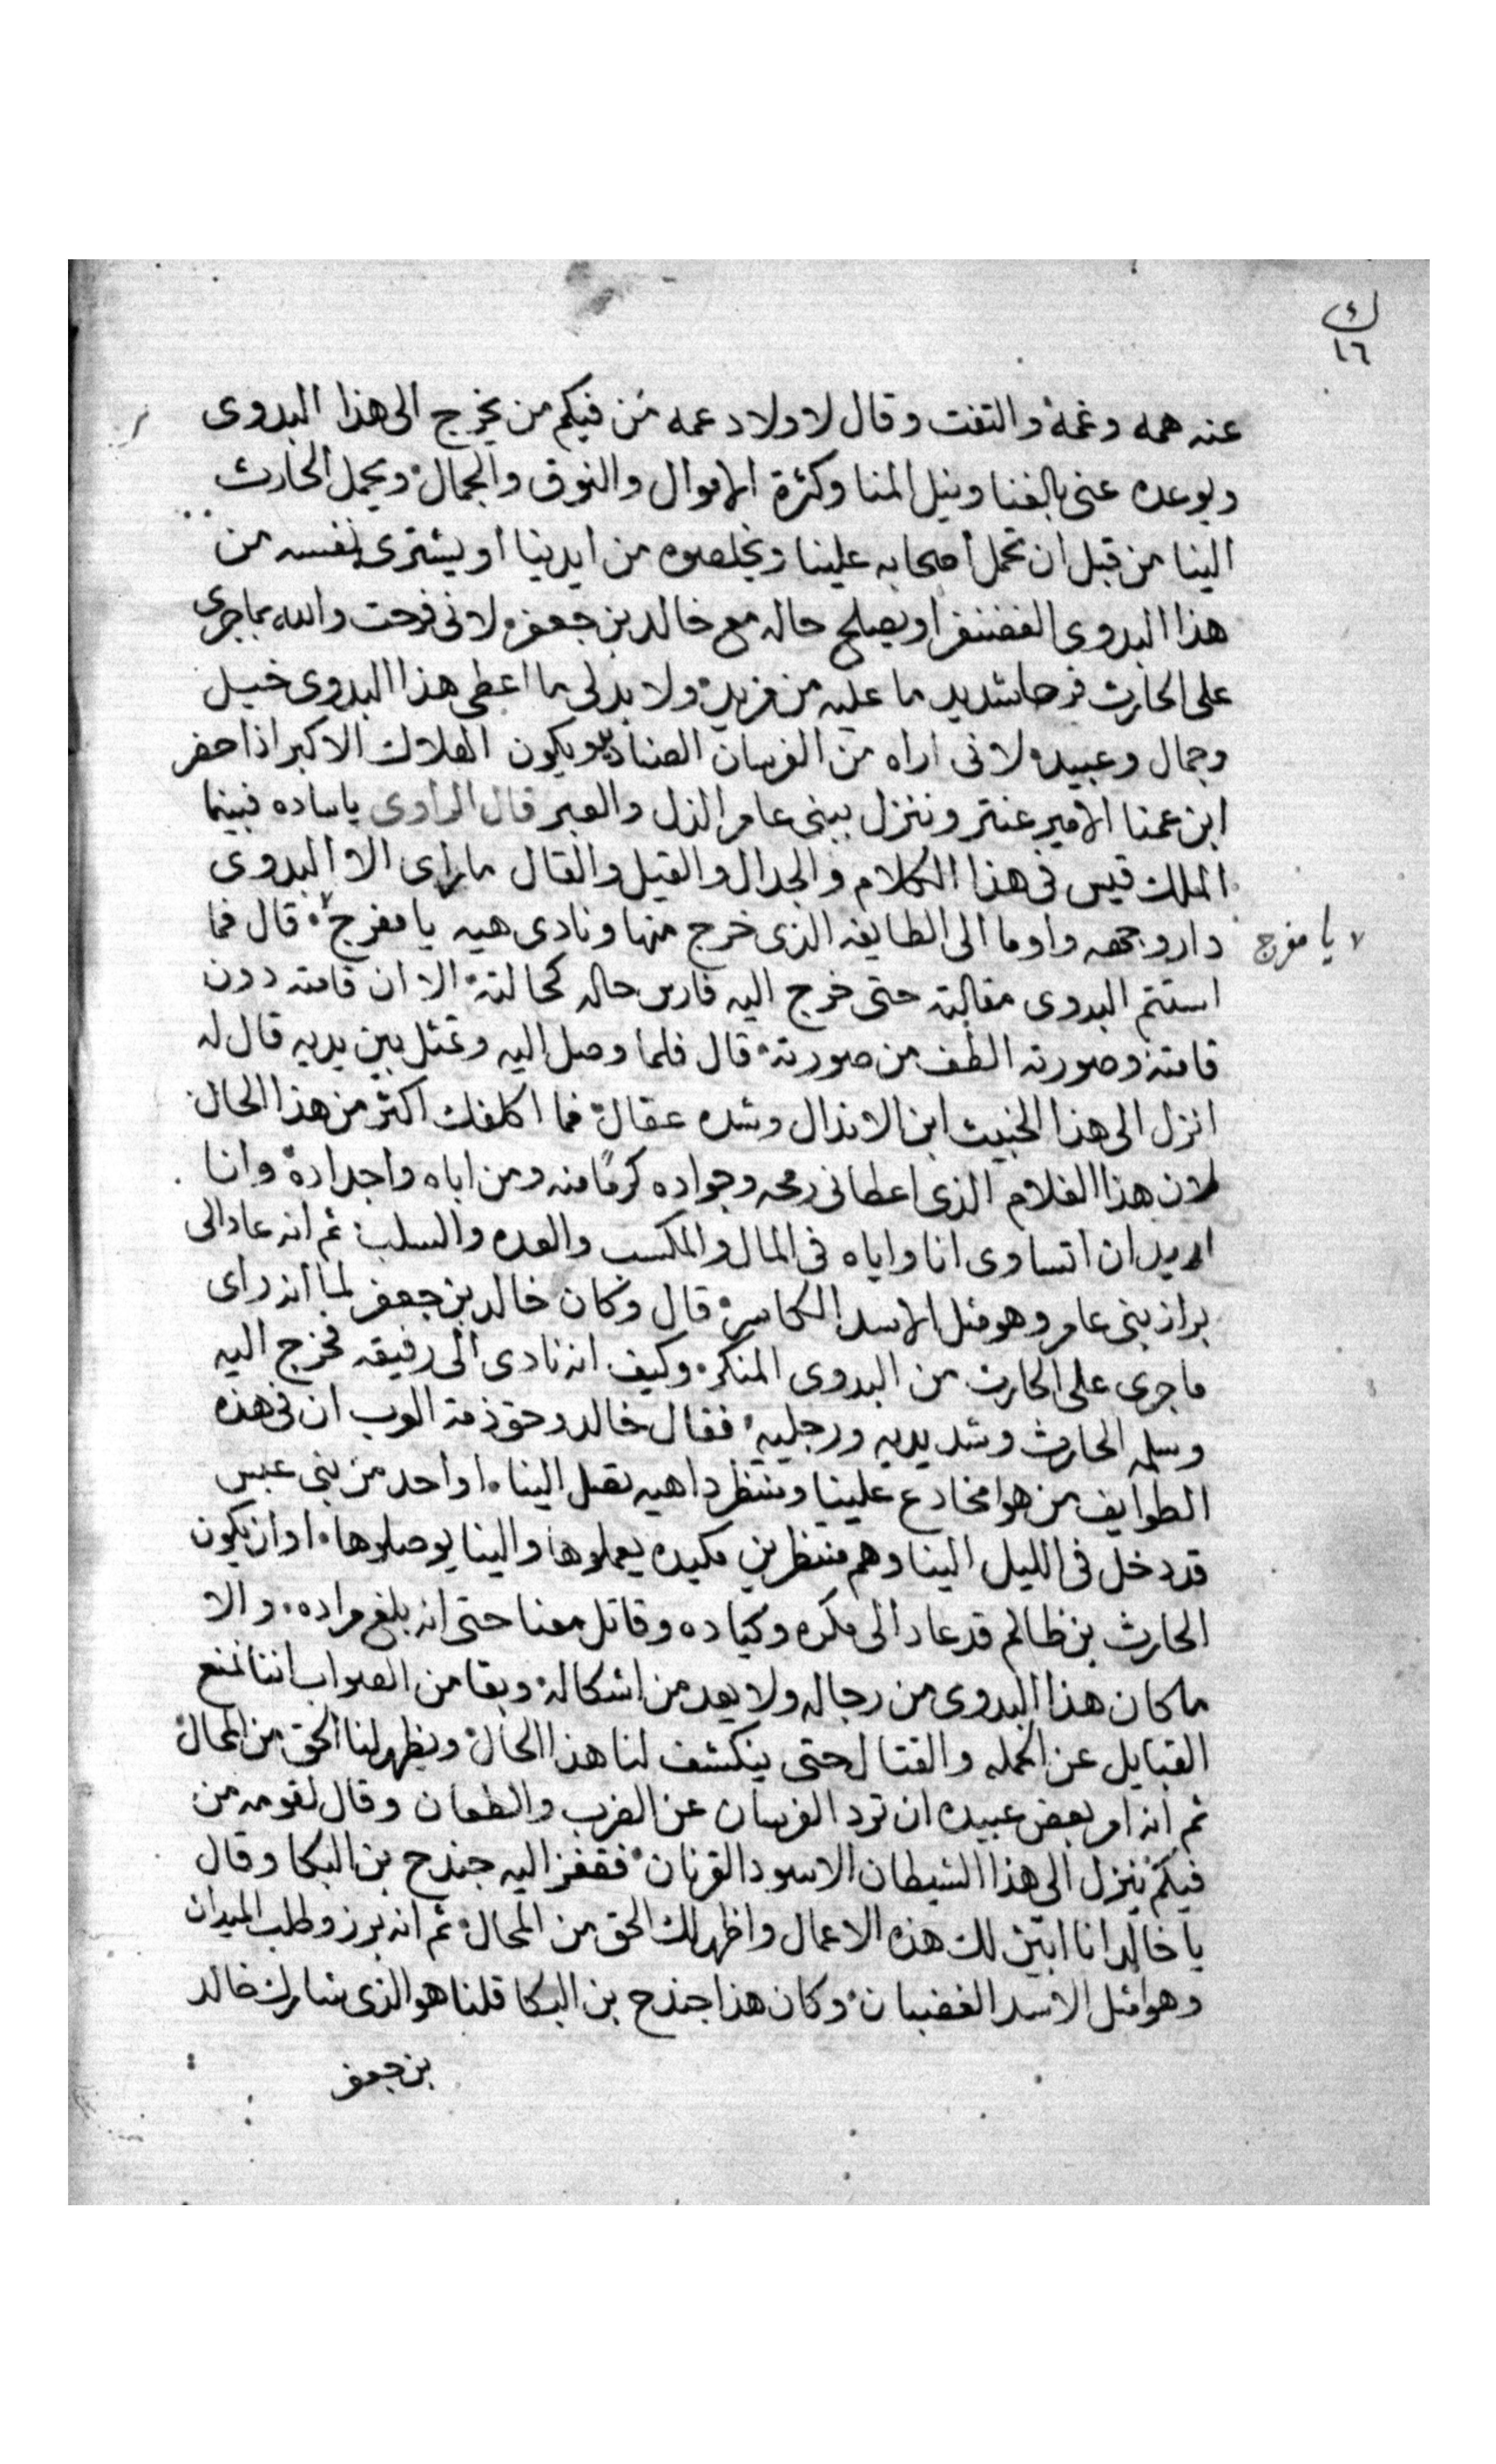 ك
١٦
عنه همه وغمه والتفت وقال لاولاد عمه من فيكم من يخرج الى هذا البدوى
ويوعده عنى بالغنا ونيل المنا وكثرة الاموال والنوق والجمال ويحمل الحارث
الينا من قبل ان تحمل اصحابه علينا ويخلصوه من ايدينا او يشترى نفسه من
هذا البدوى الغضنفر او يصلح حاله مع خالد بن جعفر لانى فرحت والله بما جرى
على الحارث فرحا شديد ما عليه من مزيد ولا بد لى ما اعطى هذا البدوى خيل
وجمال وعبيد لانى اراه من الفرسان الصناديد ويكون الهلاك الاكبر اذا حضر
ابن عمنا الامير عنتر وننزل ببنى عامر الذل والعبر قال الراوى ياساده فبينما
الملك قيس فى هذا الكلام والجدال والقيل والقال ما راى الا البدوى
دار وجهه واوما الى الطايفه الذى خرج منها ونادى هيه يا مفرج قال فما
يا مفرج
استتم البدوى مقالته حتى خرج اليه فارس حاله كحالته الا ان قامته دون
قامته وصورته الطف من صورته قال فلما وصل اليه وتمثل بين يديه قال له
انزل الى هذا الخبيث ابن الانذال وشده عقال فما اكلفك اكثر من هذا الحال
لان هذا الغلام الذى اعطانى رمحه وجواده كرمًا منه ومن اباه واجداده وانا
اريد ان اتساوى انا واياه فى المال والمكسب والعده والسلب ثم انه عاد الى
براز بنى عامر وهو مثل الاسد الكاسر قال وكان خالد بن جعفر لما انه راى
ما جرى على الحارث من البدوى المنكر وكيف انه نادى الى رفيقه فخرج اليه
وسلمه الحارث وشد يديه ورجليه فقال خالد وحق ذمة العرب ان فى هذه
الطوايف من هوا مخادع علينا وينتظر داهيه تصل الينا او احد من بنى عبس
قد دخل فى الليل الينا وهم منتظرين مكيده يعملوها والينا يوصلوها او ان يكون
الحارث بن ظالم قد عاد الى مكره وكياده وقاتل معنا حتى انه بلغ مراده والا
ما كان هذا البدوى من رجاله ولا يعد من اشكاله وبقا من الصواب اننا نمنع
القبايل عن الحمله والقتال حتى ينكشف لنا هذا الحال ويظهر لنا الحق من المحال
ثم انه امر بعض عبيده ان ترد الفرسان عن الضرب والطعان وقال لقومه من
فيكم ينزل الى هذا الشيطان الاسود القرنان فقفز اليه جندح بن البكا وقال
يا خالد انا ابين لك هذه الاعمال واظهر لك الحق من المحال ثم انه برز وطلب الميدان
وهوا مثل الاسد الغضبان وكان هذا جندح بن البكا قلنا هو الذى شارك خالد
بن جعفر